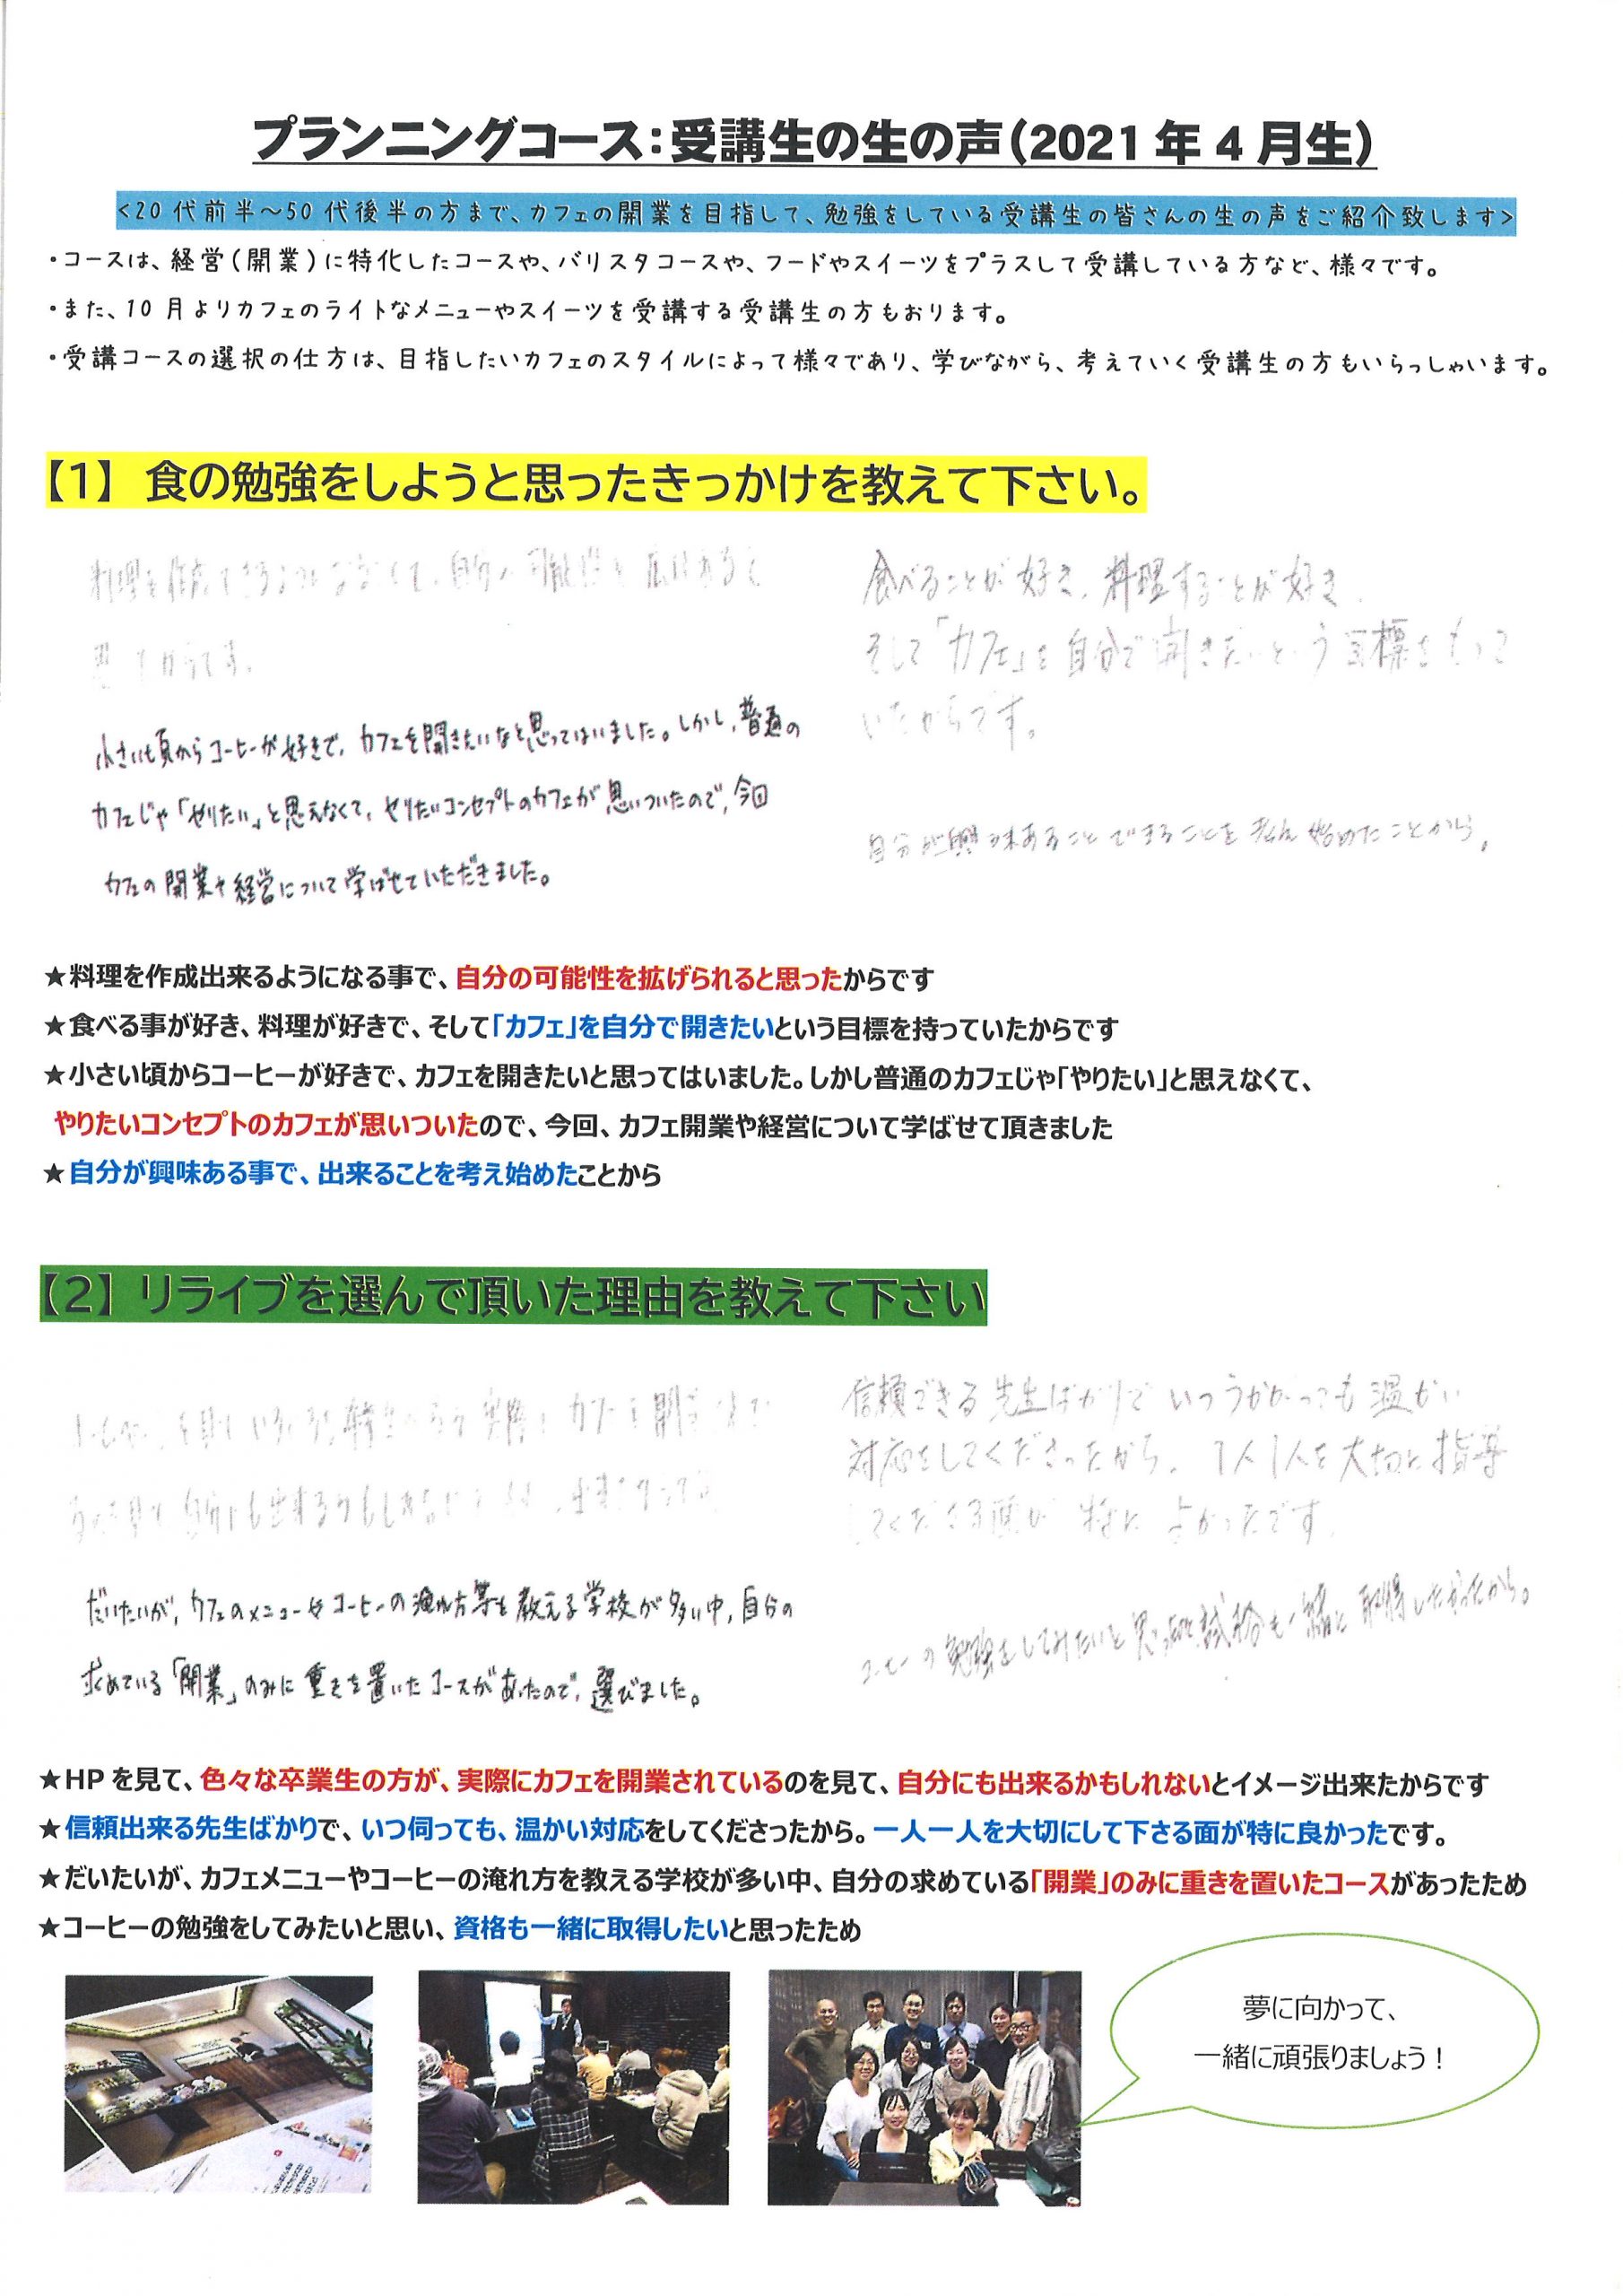 プランニングコース：受講生の生の声（2021年4月生）
<20代前半～50代後半の方まで、カフェの開業を目指して、勉強をしている受講生の皆さんの生の声をご紹介致します>
・コースは、経営（開業）に特化したコースや、バリスタコースや、フードやスイーツをプラスして受講している方など、様々です。
・また、10月よりカフェのライトなメニューやスイーツを受講する受講生の方もおります。
・受講コースの選択の仕方は、目指したいカフェのスタイルによって様々であり、学びながら、考えていく受講生の方もいらっしゃいます。
【1】 食の勉強をしようと思ったきっかけを教えて下さい。
料理を作成できるようになるなくて、自分の可能性を広げれると
思ってからです。
小さい頃からコーヒーが好きで、カフェを開きたいなと思ってはいました。しかし、普通の
カフェじゃ「やりたい」と思えなくて、やりたいコンセプトのカフェが思いついたので、今回
カフェの開業や経営について学ばせていただきました。
食べることが好き、料理することが好き、
そして「カフェ」を自分で開きたいという目標をもって
いたからです。
自分が興味あることできることを考え始めたことから。
★料理を作成出来るようになる事で、自分の可能性を拡げられると思ったからです
★食べる事が好き、料理が好きで、そして「カフェ」を自分で開きたいという目標を持っていたからです
★小さい頃からコーヒーが好きで、カフェを開きたいと思ってはいました。しかし普通のカフェじゃ「やりたい」と思えなくて、
やりたいコンセプトのカフェが思いついたので、今回、カフェ開業や経営について学ばせて頂きました
★自分が興味ある事で、出来ることを考え始めたことから
【2】リライブを選んで頂いた理由を教えて下さい
だいたいが、カフェのメニューやコーヒーの淹れ方等を教える学校が多い中、自分の
求めている「開業」のみに重きを置いたコースがあったので、選びました。
信頼できる先生ばかりで いつうかがっても温かい
対応をしてくださったから。1人1人を大切に指導
してくださる面が特によかったです。
コーヒーの勉強をしてみたいと思った 試験も一緒に取得したかったから。
★HPを見て、色々な卒業生の方が、実際にカフェを開業されているのを見て、自分にも出来るかもしれないとイメージ出来たからです
★信頼出来る先生ばかりで、いつ伺っても、温かい対応をしてくださったから。一人一人を大切にして下さる面が特に良かったです。
★だいたいが、カフェメニューやコーヒーの淹れ方を教える学校が多い中、自分の求めている「開業」のみに重きを置いたコースがあったため
★コーヒーの勉強をしてみたいと思い、資格も一緒に取得したいと思ったため
夢に向かって、
一緒に頑張りましょう！